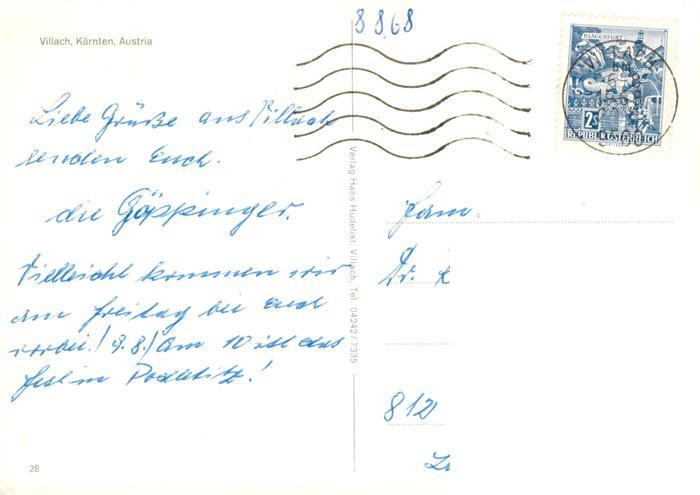 8868
Villach, Kärnten, Austria
KLAGENFURT
VILLACH
2S
REPUBLIK ÖSTERREICH
Liebe Grüße aus Villach
senden Euch.
die Göppinger.
Vielleicht kommen wir
am Freitag bei Euch
vorbei! 9.8./ Am 10 ist das
Fest in
Verlag Hans Hudelist, Villach, Tel. 04242/7335
Fam.
Dr.
812
28